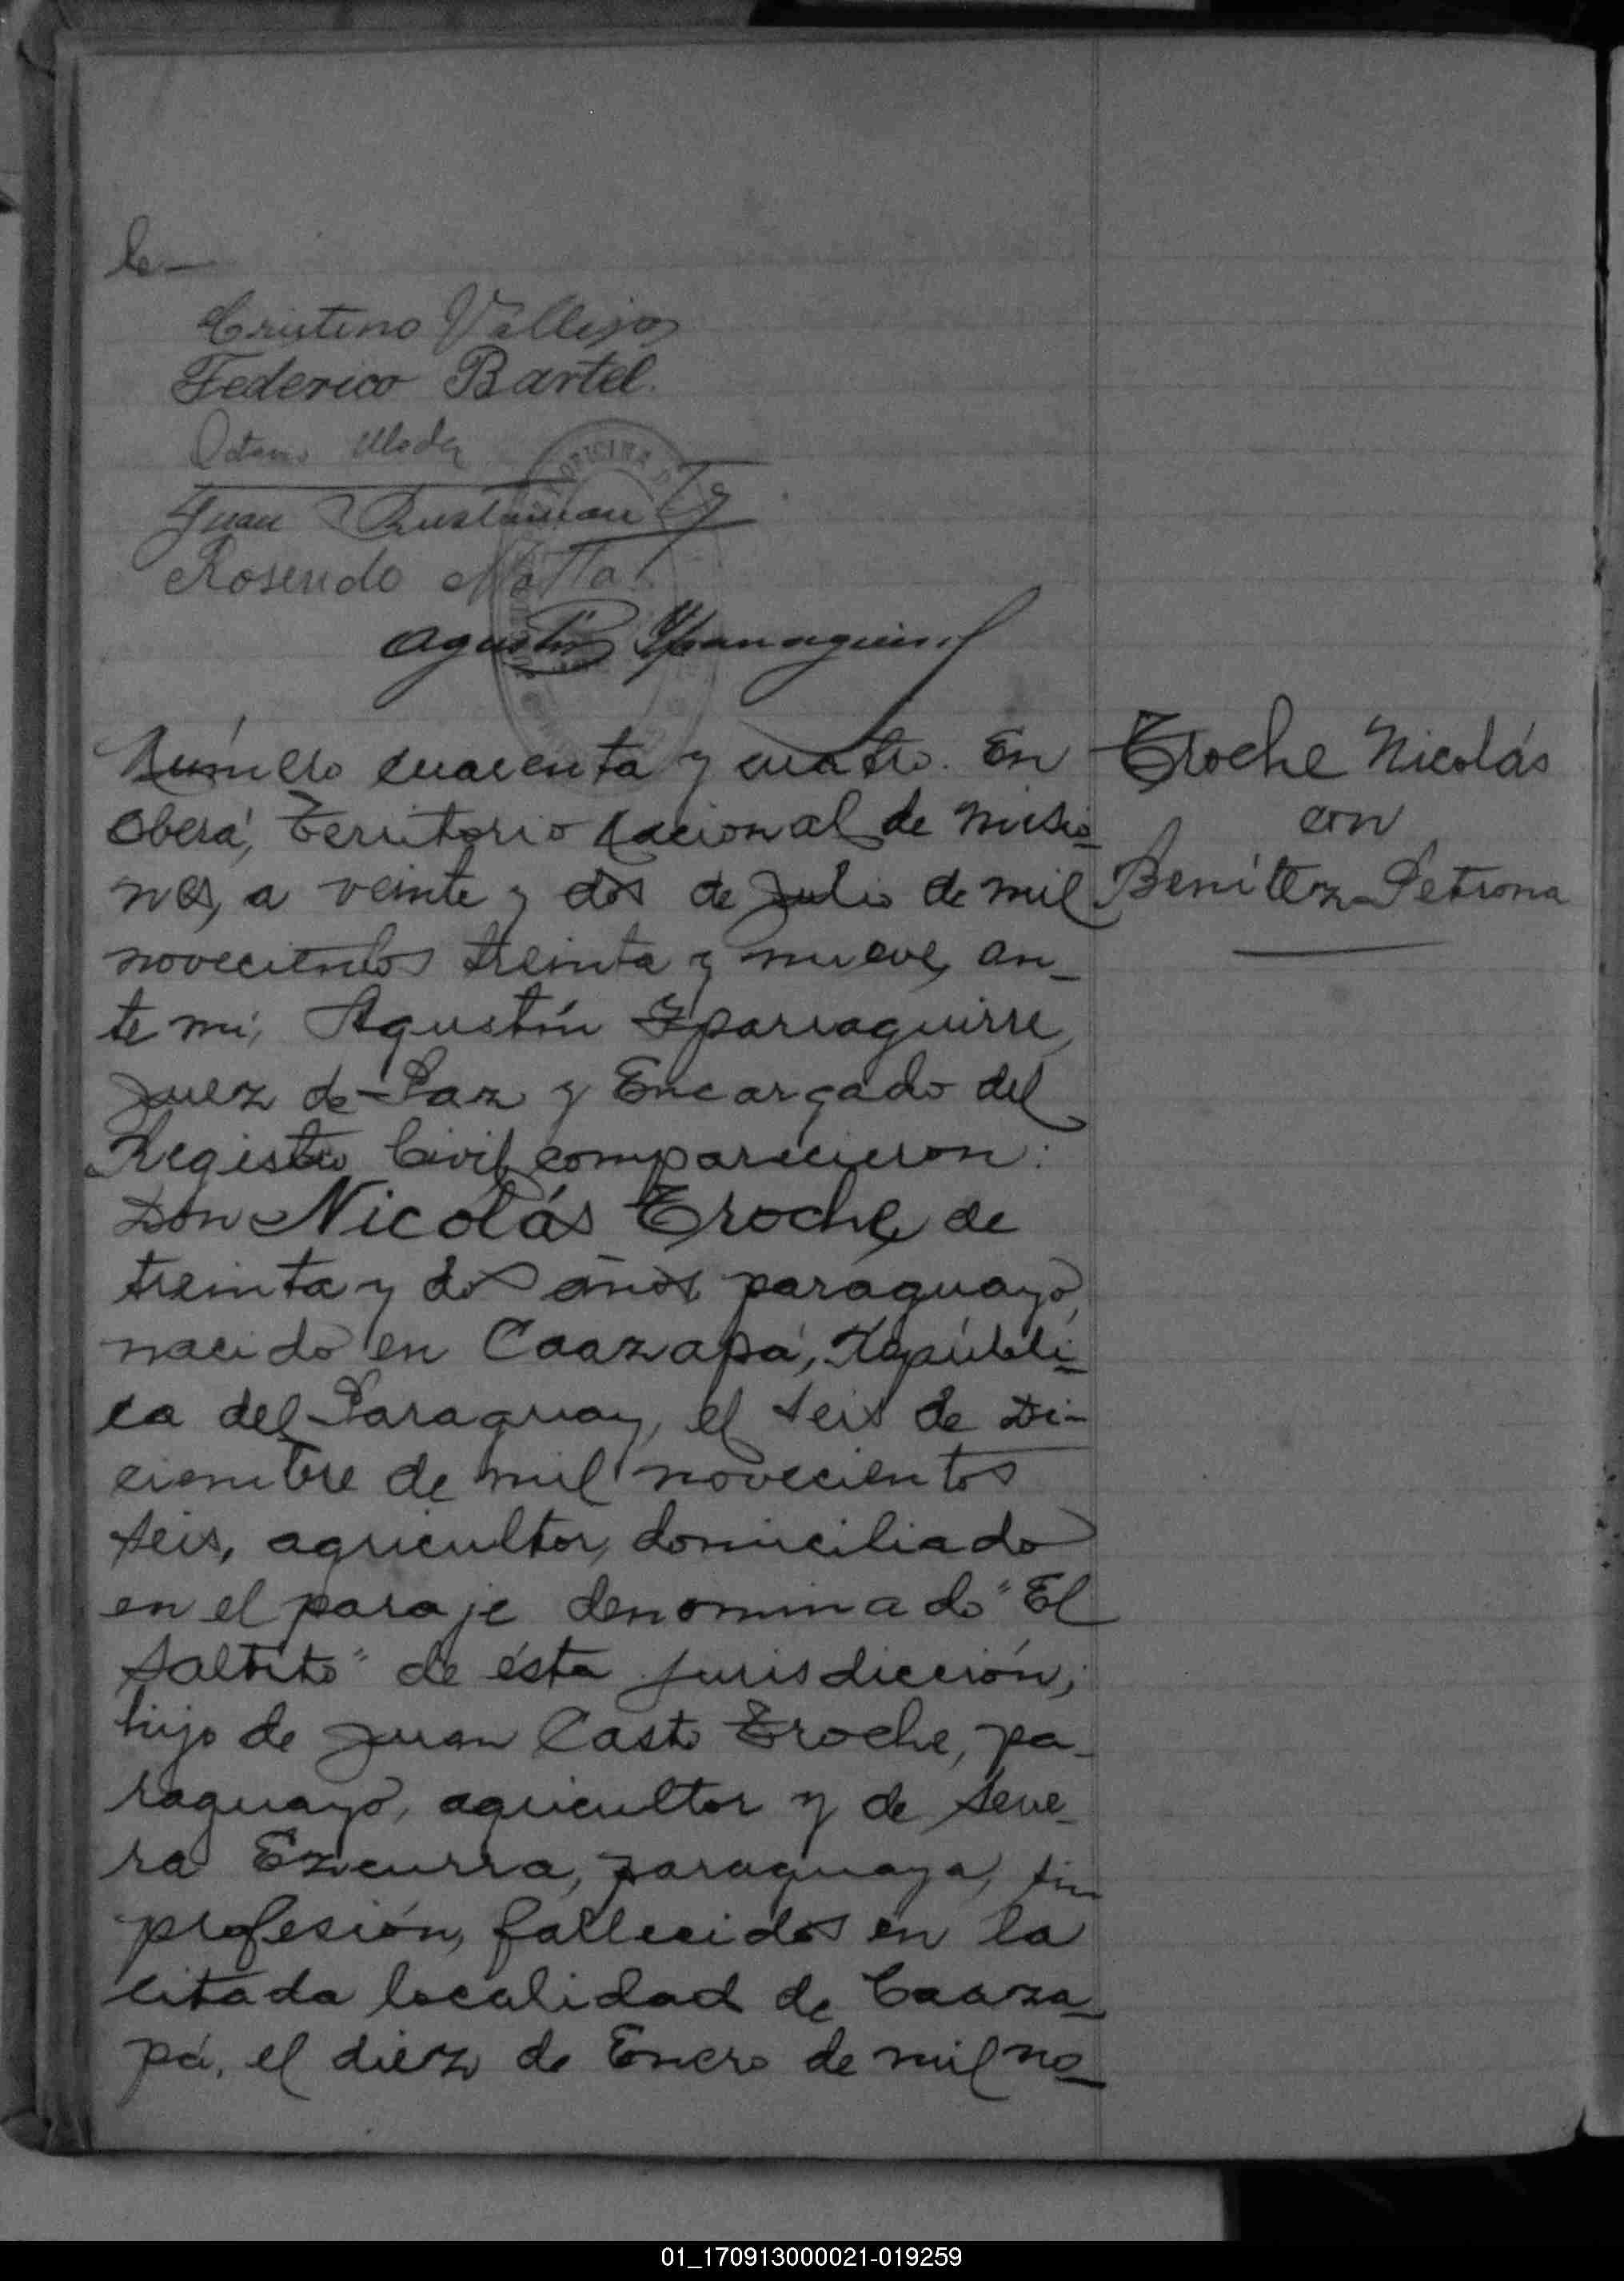 le—
Cristino Vallejos
Federico Bartel.
Juan Bustamante
Rosendo Motta
Agustín Yparraguirre
Número cuarenta y cuatro. En
Oberá, Territorio Nacional de Misio-
nes, a veinte y dos de Julio de mil
novecientos treinta y nueve, an-
te mí, Agustín Yparraguirre,
Juez de Paz y Encargado del
Registro Civil, comparecieron:
Don Nicolás Troche, de
treinta y dos años, paraguayo,
nacido en Caazapá, Repúbli-
ca del Paraguay, el seis de Di-
ciembre de mil novecientos
seis, agricultor, domiciliado
en el paraje denominado "El
Saltito" de ésta jurisdicción,
hijo de Juan Casto Troche, pa-
raguayo, agricultor y de Seve-
ra Ezcurra, paraguaya, sin
profesión, fallecidos en la
citada localidad de Caaza-
pá, el diez de Enero de mil no-
Troche Nicolás
con
Benítez Petrona
01_170913000021-019259